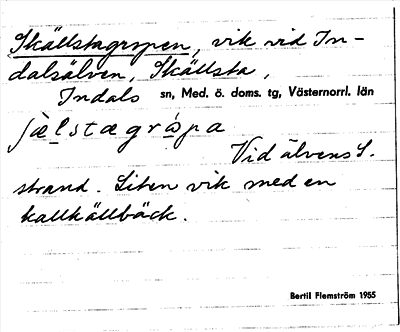 Skällstagropen, vik vid In-
dalsälven, Skällsta,
Indals sn, Med. ö. doms. tg, Västernorrl. län
Vid älvens S.
strand. Liten vik med en
kallkällbäck.
Bertil Flemström 1955